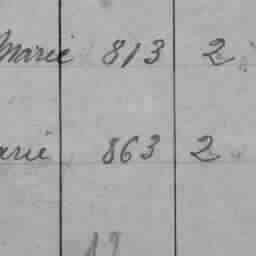 Marie 813 2
arie 863 2